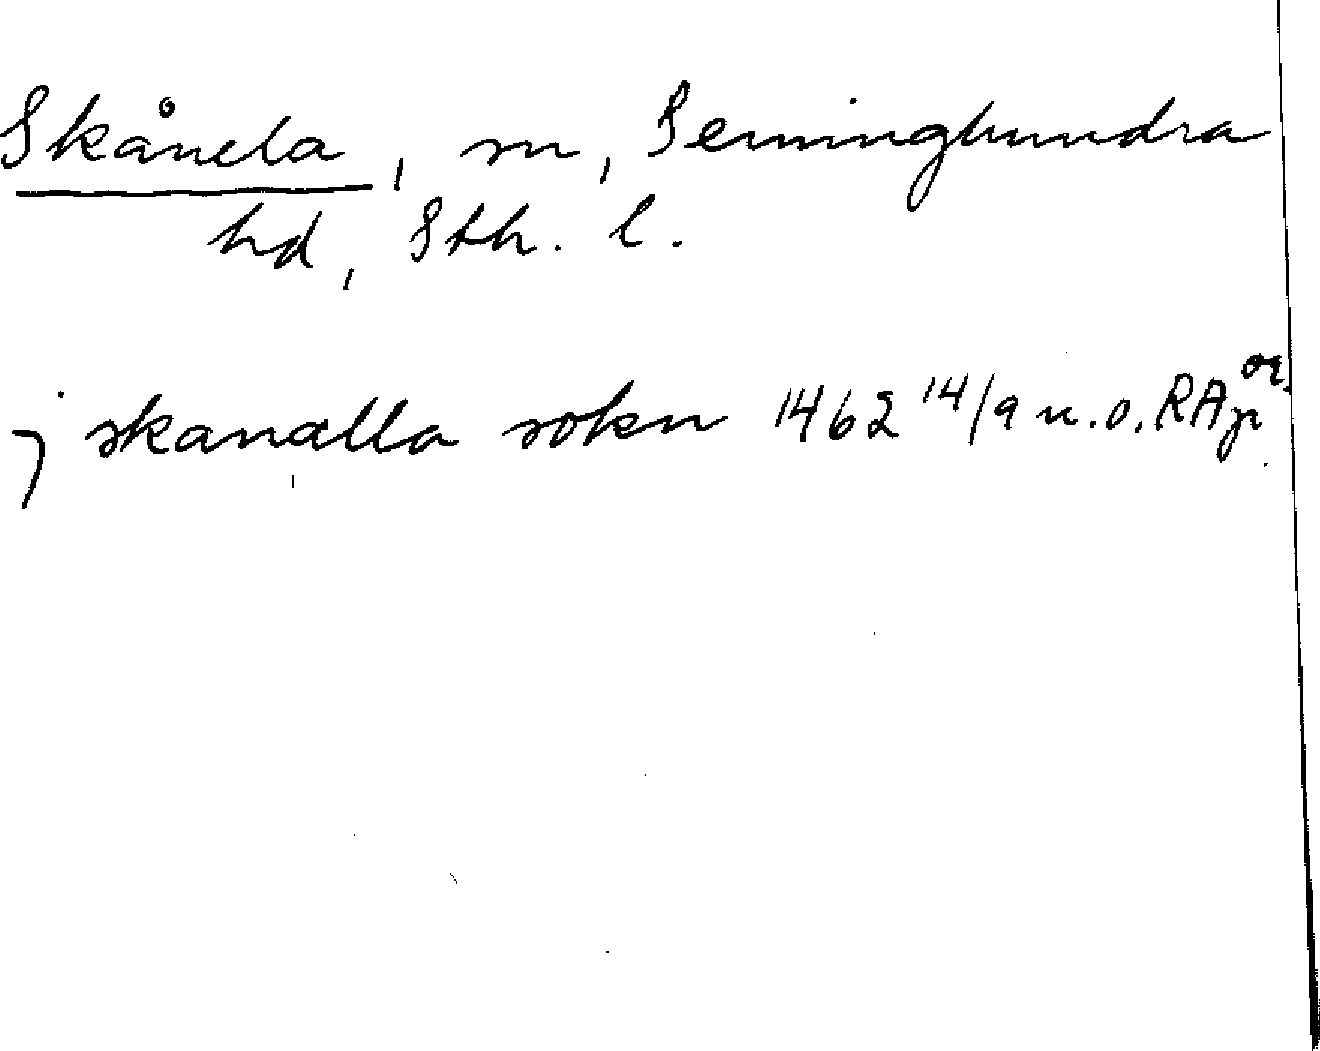 Skånela, sn, Seminghundra
hd, Sth. l.
j skanælla sokn 1462 14/9 u.o. RAp or.